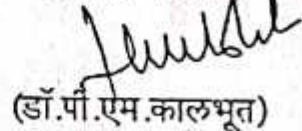 (डॉ.पी.एम.कालभूत)